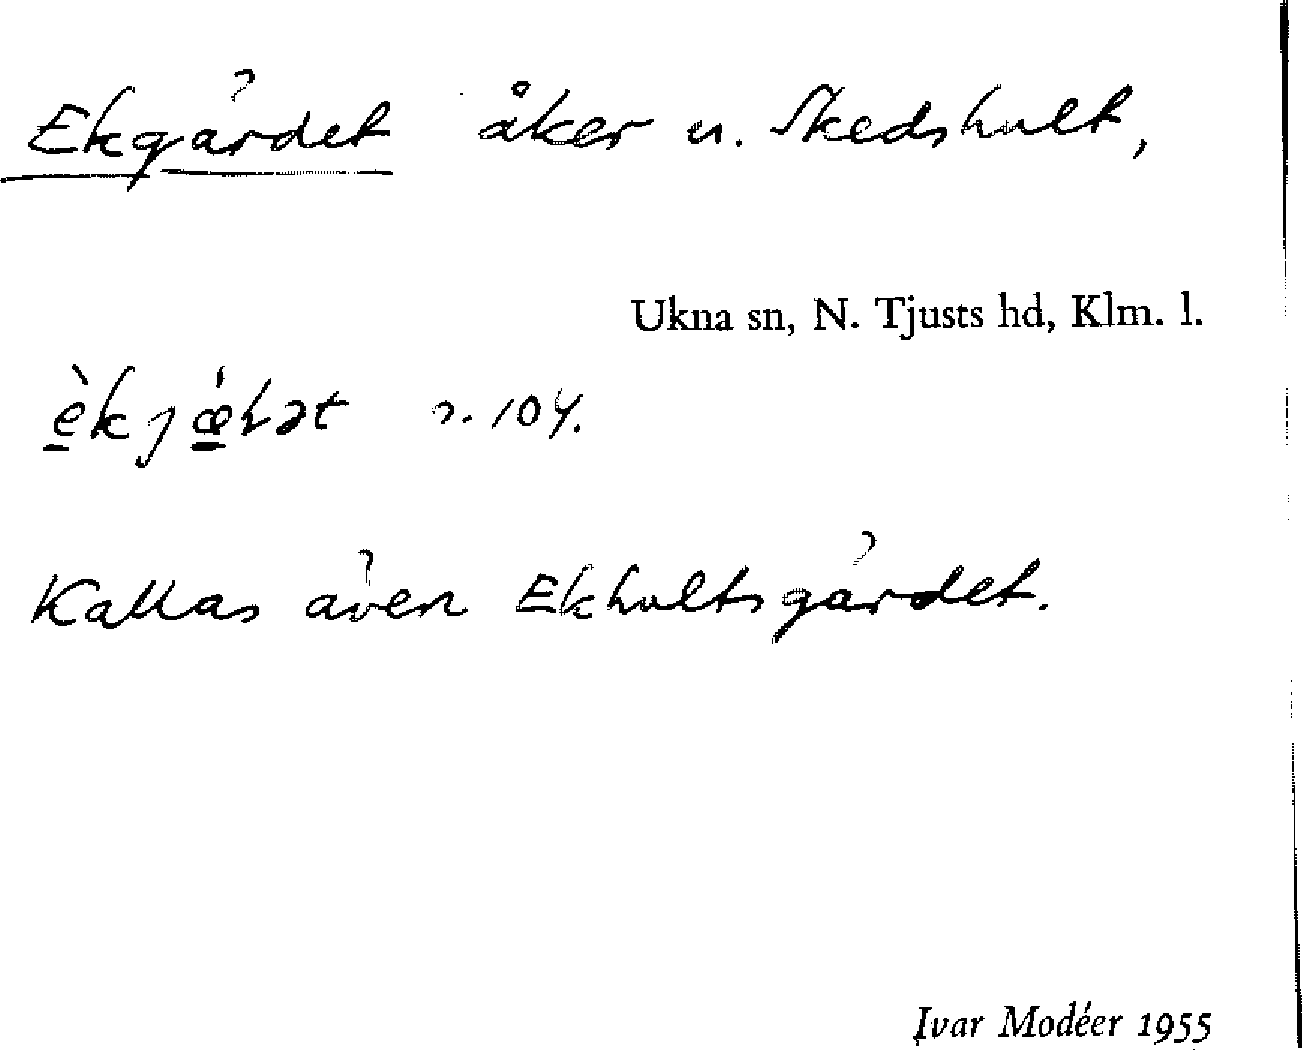 Ekgärdet åker u. Skedshult,
Ukna sn, N. Tjusts hd, Klm. l.
s. 104.
Kallas även Ekhultsgärdet.
Ivar Modéer 1955